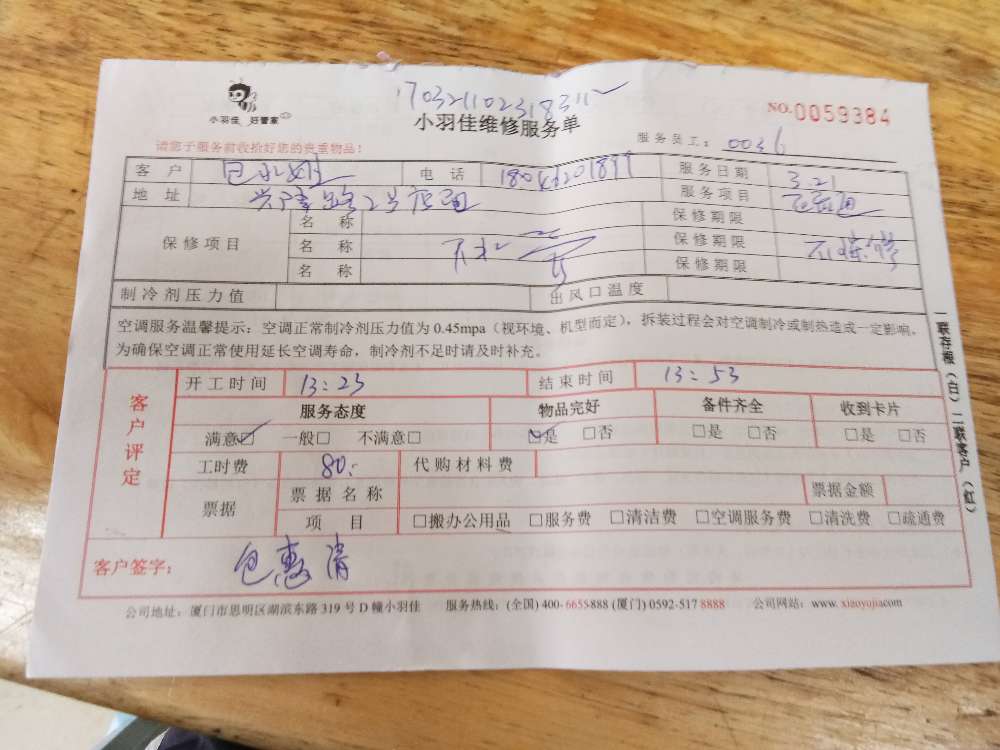 170321102318311
小羽佳 好管家
小羽佳维修服务单
NO.0059384
请您于服务前收拾好您的贵重物品！
服务员工： 0036
客户 包小姐 电话 服务日期 3.21
地址 兴隆路2号店面 服务项目
保修项目 名称 保修期限
名称 保修期限 不保修
名称 保修期限
制冷剂压力值 出风口温度
空调服务温馨提示：空调正常制冷剂压力值为 0.45mpa（视环境、机型而定），拆装过程会对空调制冷或制热造成一定影响，
为确保空调正常使用延长空调寿命，制冷剂不足时请及时补充。
客户评定
开工时间 13:23 结束时间 13:53
服务态度 物品完好 备件齐全 收到卡片
满意☑ 一般□ 不满意□ ☑是 □否 □是 □否 □是 □否
工时费 80.- 代购材料费
票据 票据名称 票据金额
项目 □搬办公用品 □服务费 □清洁费 □空调服务费 □清洗费 □疏通费
客户签字： 包惠清
公司地址：厦门市思明区湖滨东路 319 号 D 幢小羽佳 服务热线：(全国) 400-6655888 (厦门) 0592-517 8888 公司网站：www. xiaoyujiacom
一联存根（白）二联客户（红）